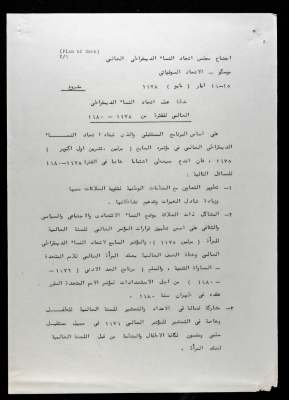 (Plan of Work)
P/1
اجتماع مجلس اتحاد النساء الديمقراطي العالمي
موسكو - الاتحاد السوفياتي
١٥-١١ ايار ( مايو ) ١٩٧٨ مشروع
خطة عمل اتحاد النساء الديمقراطي
العالمي للفترة من ١٩٧٨ - ١٩٨٠
على اساس البرنامج المستقبلي والذي تبناه اتحاد النساء
الديمقراطي العالمي في مؤتمره السابع ( برلين ، تشرين اول اكتوبر )
١٩٧٥ ، فان اندع سيعطي اهتماما خاصا في الفترة ١٩٧٨-١٩٨٠
للمسائل التالية :
١- تطوير التعاون مع المنظمات الوطنية لتقوية العلاقات معها
وزيادة تبادل الخبرات وتدعيم نشاطاتها.
٢- المشاكل ذات العلاقة بوضع النساء الاقتصادي والاجتماعي والسياسي
والثقافي على اسس تطبيق قرارات المؤتمر العالمي للسنة العالمية
للمرأة ( برلين ١٩٧٥ )، والمؤتمر السابع لاتحاد النساء الديمقراطي
العالمي وخطة العمل العالمية بعقد المرأة العالمي للامم المتحدة
- المساواة التنمية ، والسلم ( برنامج الحد الادنى ) ١٩٧٦ -
١٩٨٠ ) من اجل الاستعدادات لمؤتمر الامم المتحدة المقرر
عقده في طهران سنة ١٩٨٠ .
٣- مشاركة فعالة في الاعداد والتحضير للسنة العالمية للطفل
وخاصة في التحضير للمؤتمر العالمي ١٩٧٩ في سبيل مستقبل
سلمي ومضمون لكافة الاطفال والمنظمة من قبل اللجنة العالمية
لعقد المرأة .